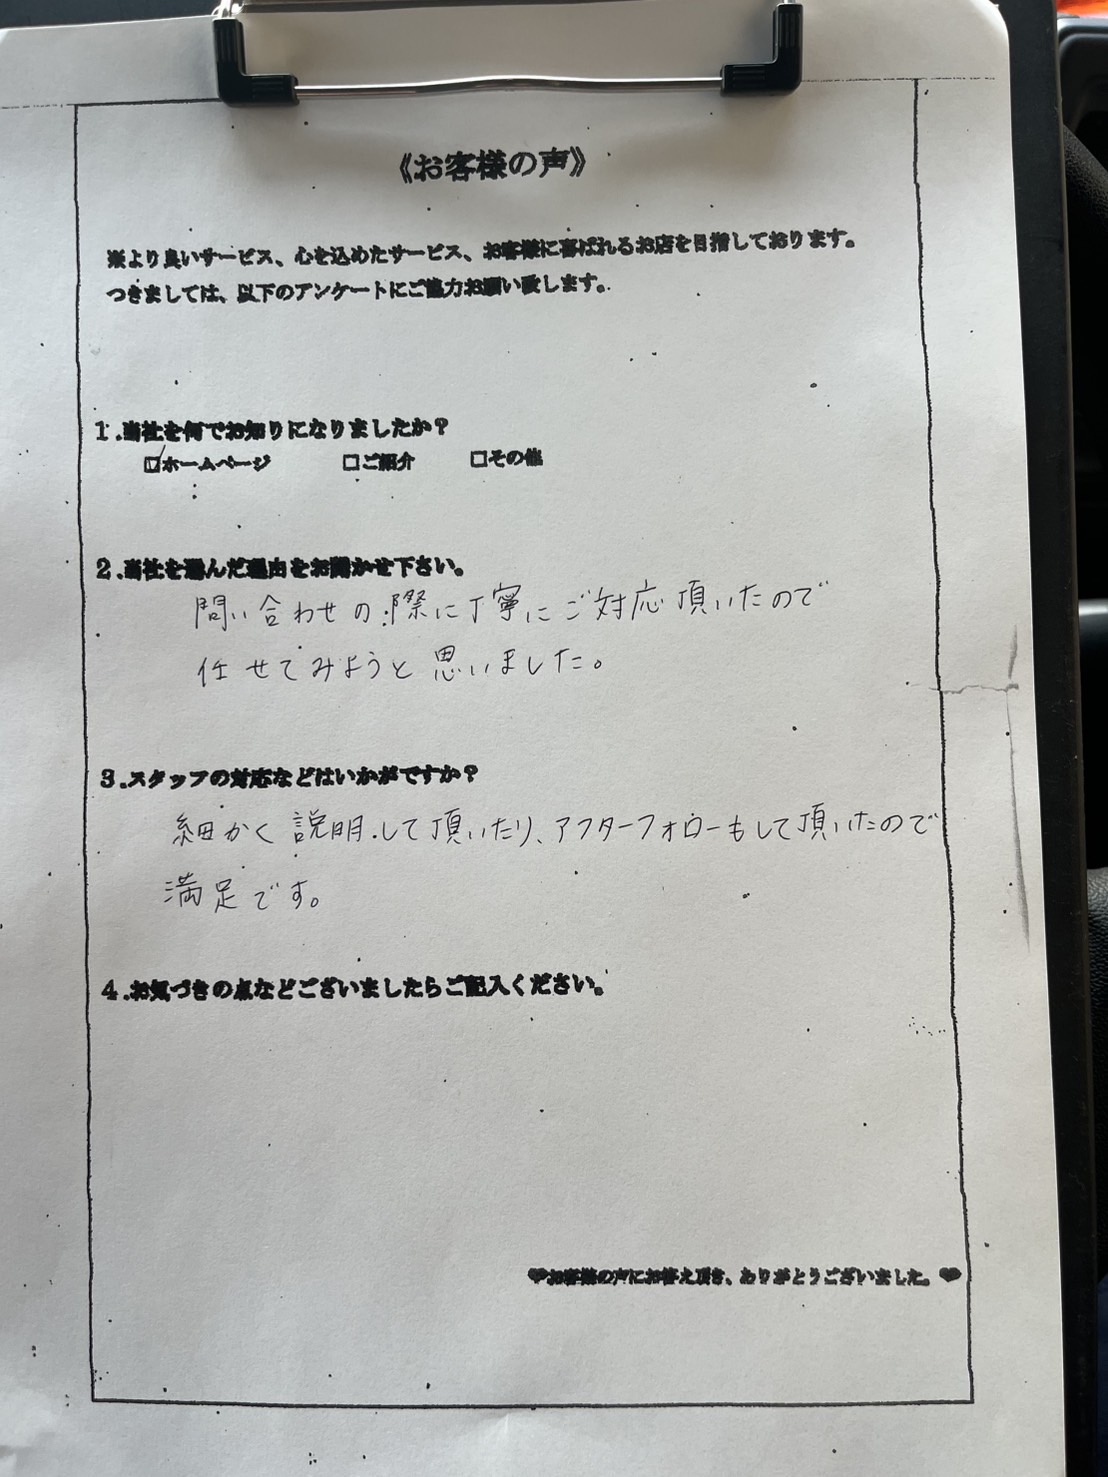 《お客様の声》
※より良いサービス、心を込めたサービス、お客様に喜ばれるお店を目指しております。
つきましては、以下のアンケートにご協力お願い致します。
1.当社を何でお知りになりましたか?
☑ホームページ □ご紹介 □その他
2.当社を選んだ理由をお聞かせ下さい。
問い合わせの際に丁寧にご対応頂いたので
任せてみようと思いました。
3.スタッフの対応などはいかがですか?
細かく説明して頂いたり、アフターフォローもして頂いたので
満足です。
4.お気づきの点などございましたらご記入ください。
♥お客様の声にお答え頂き、ありがとうございました。♥